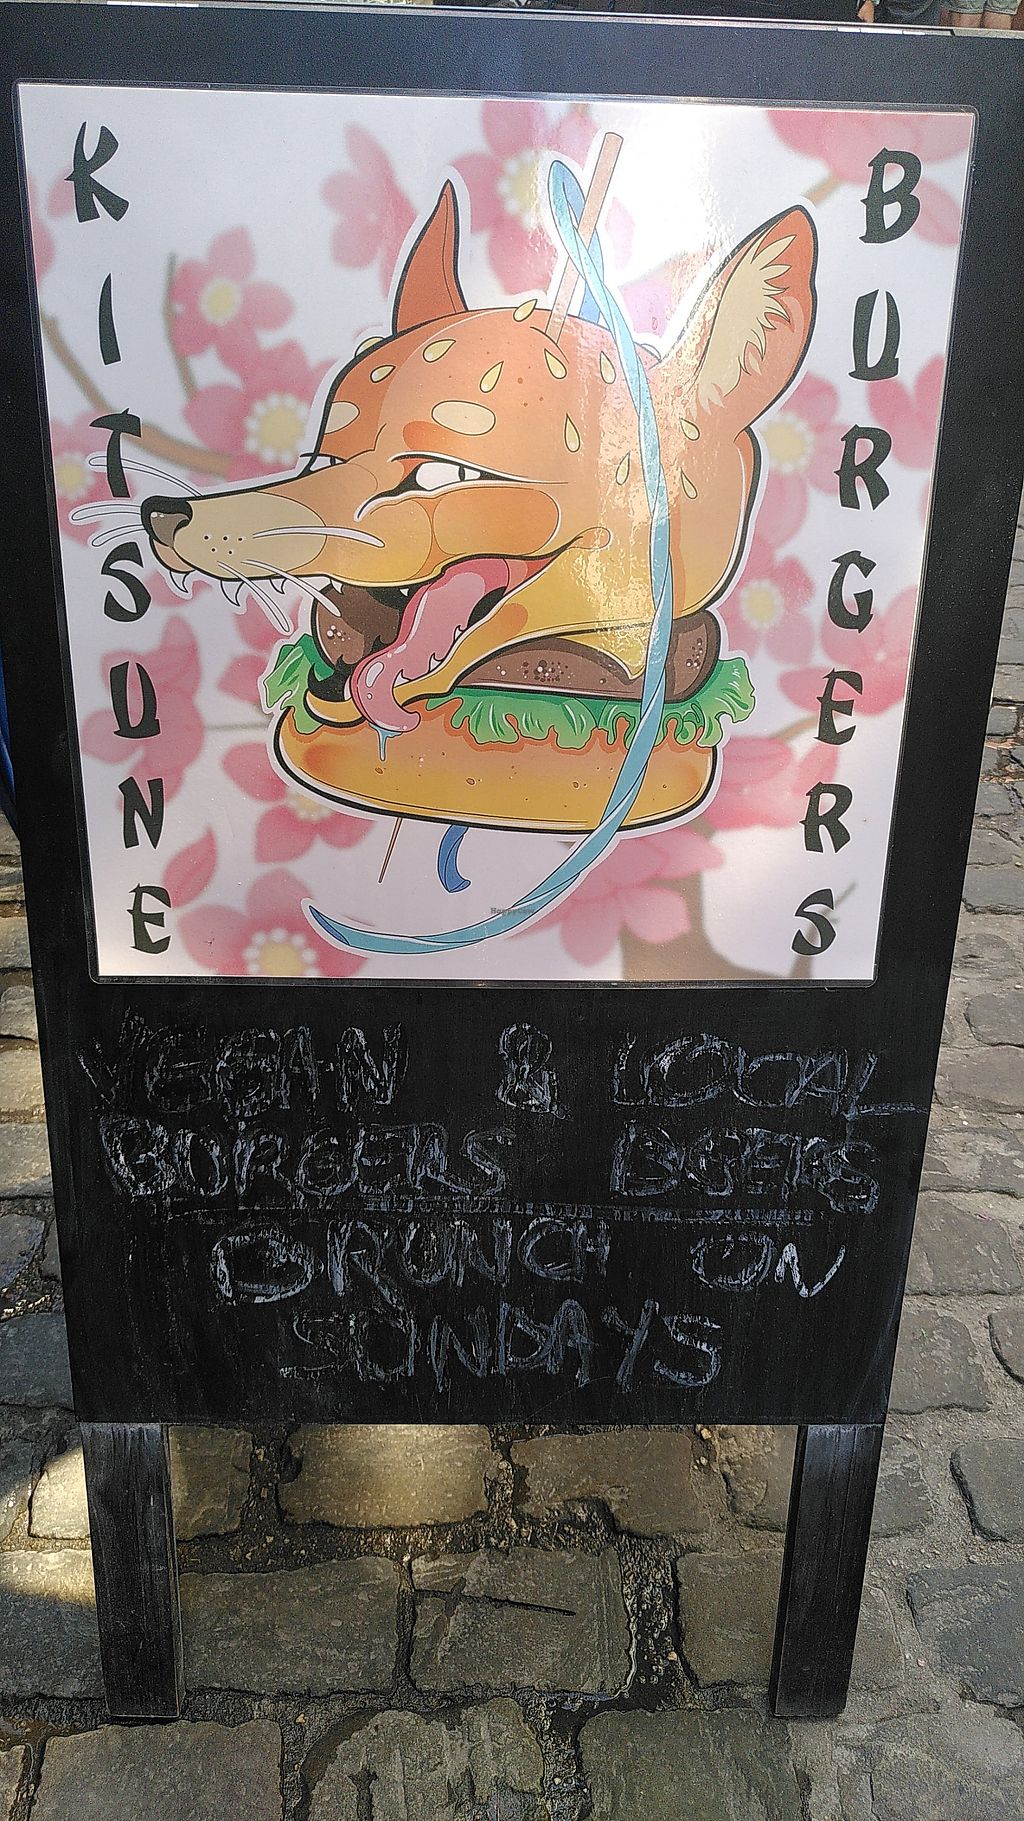 KITSUNE
BURGERS
HappyCow
VEGAN & LOCAL
BURGERS BEERS
BRUNCH ON
SUNDAYS